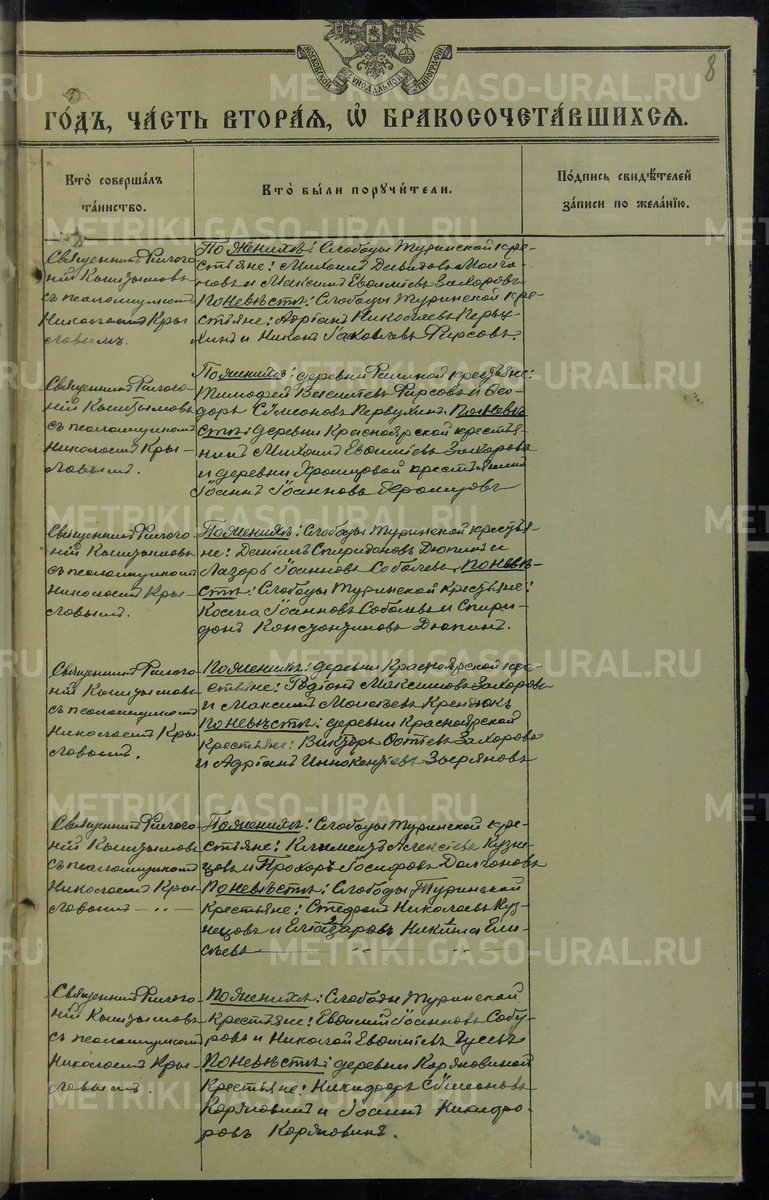 МОСКОВСКОЙ СѴНОДАЛЬНОЙ ТИПОГРАФІИ
8
METRIKI.GASO-URAL.RU METRIKI.GASO-URAL.RU
ГО́ДЪ, ЧА́СТЬ ВТОРА́Я, Ѡ҆ БРАКОСОЧЕТА́ВШИХСЯ.
Кто̀ соверша́лъ
та́инство.
Кто̀ бы́ли поручи́тели.
По́дпись свидѣ́телей
за́писи по жела́нїю.
Священникъ Филого-
ній Кашызымовъ
съ псаломщикомъ
Николаемъ Кры-
ловымъ.
По женихѣ: Слободы Туринской кре-
стьяне: Михаилъ Давидовъ Молча-
новъ и Максимъ Евдокимовъ Захаровъ
По невѣстѣ: Слободы Туринской кре-
стьяне: Адріанъ Николаевъ Перву-
хинъ и Никонъ Іаковлевъ Фирсовъ.
Священникъ Филого-
ній Кашызымовъ
съ псаломщикомъ
Николаемъ Кры-
ловымъ.
По женихѣ: деревни крестьяне:
Тимофей Васильевъ Фирсовъ и Ѳео-
доръ Сѵмеоновъ Первухинъ По невѣ-
стѣ: деревни Красноярской крестья-
нинъ Михаилъ Захаровъ
и деревни крестьянинъ
Іоаннъ Іоанновъ
Священникъ Филого-
ній Кашызымовъ
съ псаломщикомъ
Николаемъ Кры-
ловымъ.
По женихѣ: Слободы Туринской крестья-
не: Даніилъ Спиридоновъ Дюпинъ и
Лазарь Іоанновъ Соболевъ По невѣ-
стѣ: Слободы Туринской крестьяне:
Косма Іоанновъ Соболевъ и Спири-
донъ Константиновъ Дюпинъ.
Священникъ Филого-
ній Кашызымовъ
съ псаломщикомъ
Николаемъ Кры-
ловымъ.
По женихѣ: деревни Красноярской кре-
стьяне: Родіонъ Максимовъ Захаровъ
и Максимъ Моисеевъ
По невѣстѣ: деревни Красноярской
крестьяне: Викторъ Захаровъ
и Адріанъ Иннокентіевъ Зыряновъ
Священникъ Филого-
ній Кашызымовъ
съ псаломщикомъ
Николаемъ Кры-
ловымъ
По женихѣ: Слободы Туринской кре-
стьяне: Климентъ Алексѣевъ Кузне-
цовъ и Прохоръ Іосифовъ Долгановъ
По невѣстѣ: Слободы Туринской
крестьяне: Стефанъ Николаевъ Куз-
нецовъ и Еліазаровъ Никита Ели-
сѣевъ
Священникъ Филого-
ній Кашызымовъ
съ псаломщикомъ
Николаемъ Кры-
ловымъ.
По женихѣ: Слободы Туринской
крестьяне: Евдокимъ Іоанновъ Собу-
ровъ и Николай Гусевъ
По невѣстѣ: деревни Коряковиной
крестьяне: Никифоръ Сѵмеоновъ
Коряковинъ и Іоаннъ Никифо-
ровъ Коряковинъ.
METRIKI.GASO-URAL.RU